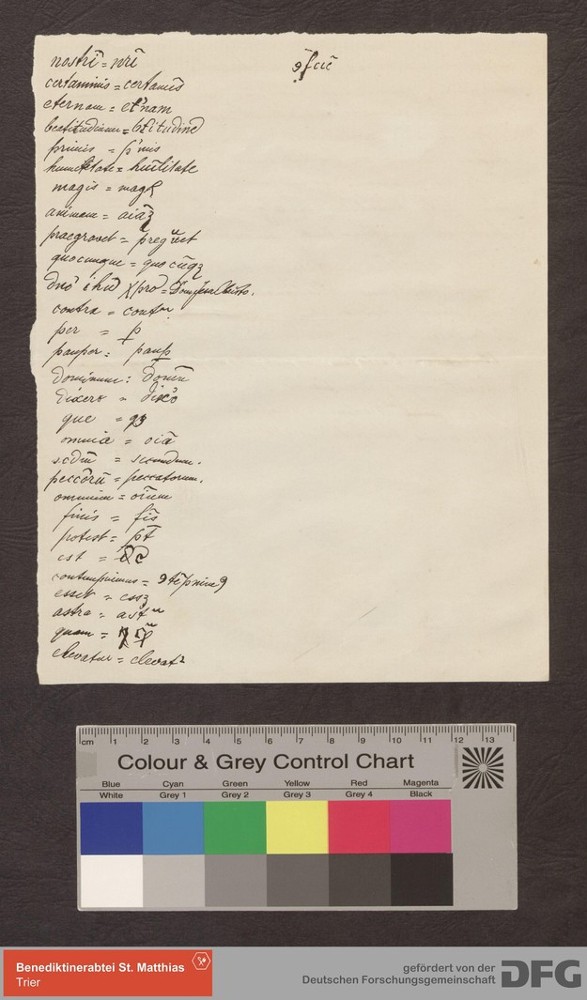 nostri = nrī
ꝯfcīē
certaminis = certamīs
eternam = et'nam
beatitudinem = btītudinē
primis = p'mis
humilitate = huīlitate
magis = magꝭ
animam = aiāʒ
praegravet = p̄egᵘuet
quocunque = quocūqʒ
dnō ihū Xpro =
contra = contᵃ
per = ꝑ
pauper : pauꝑ
Dominum : Domū
dixero = dixᵒo
que = qʒ
omnia = oīa
scdm̄ = secundum.
peccōrū = peccatorum.
omnium = oīum
finis = fīs
potest = pt̄
est =
contempsimus = ꝯtēpsimꝯ
esset = essʒ
astra = astᵃ
quam =
elevatur = elevatᷣ
cm 1 2 3 4 5 6 7 8 9 10 11 12 13
Colour & Grey Control Chart
Blue Cyan Green Yellow Red Magenta
White Grey 1 Grey 2 Grey 3 Grey 4 Black
Benediktinerabtei St. Matthias
Trier
gefördert von der
Deutschen Forschungsgemeinschaft
DFG